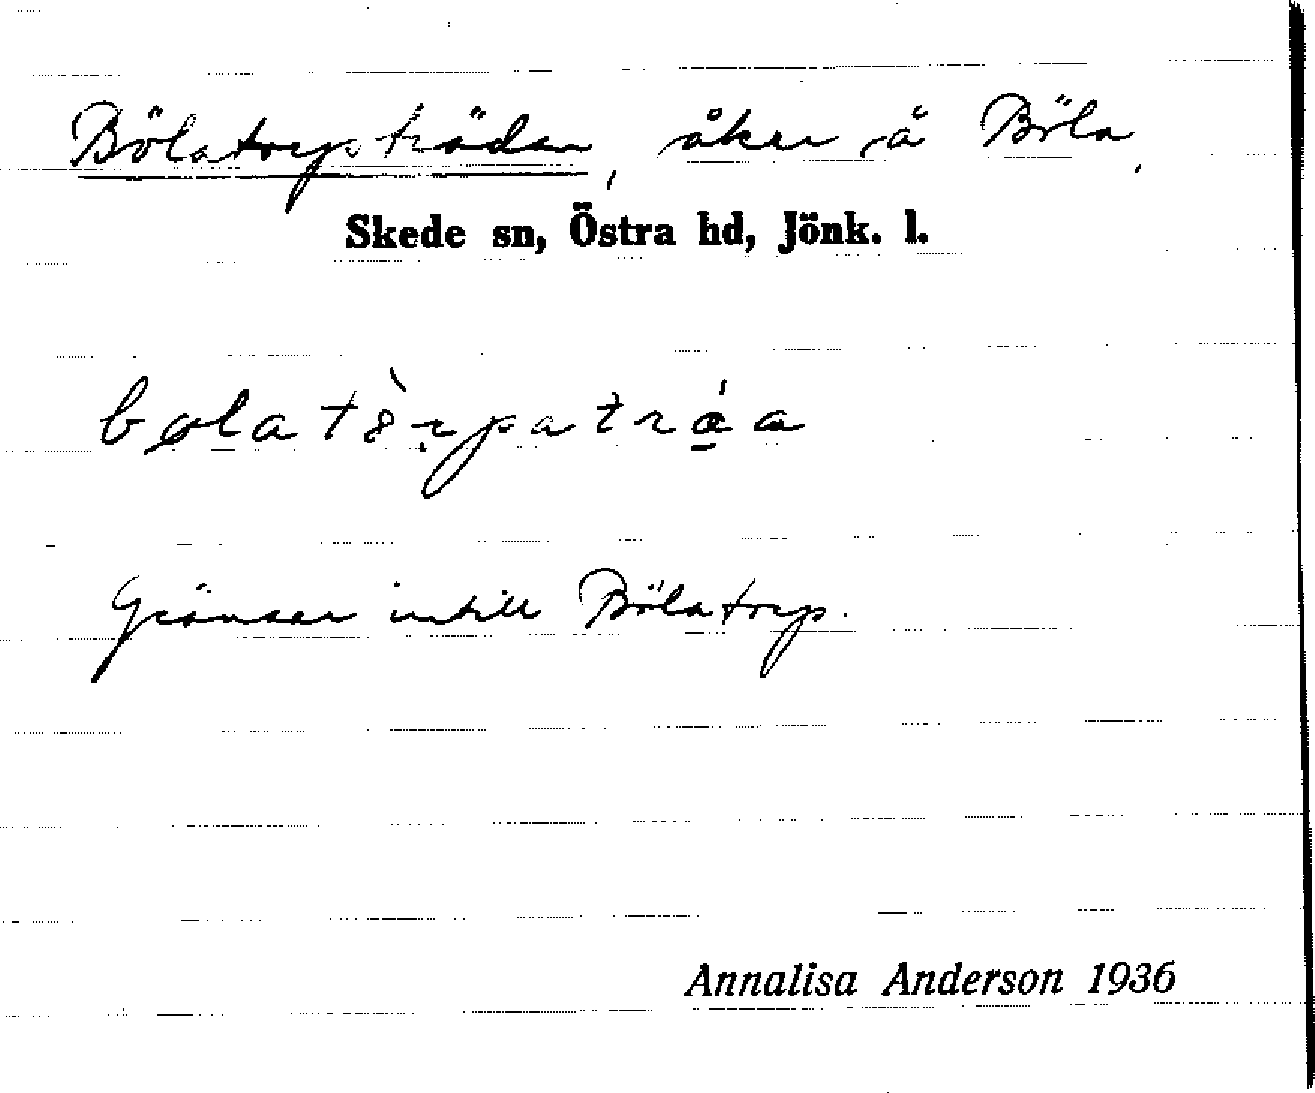 Bölatorpsträdan, åker å Böla,
Skede sn, Östra hd, Jönk. l.
bølatòrpatrǽa
Gränsar intill Bölatorp.
Annalisa Anderson 1936